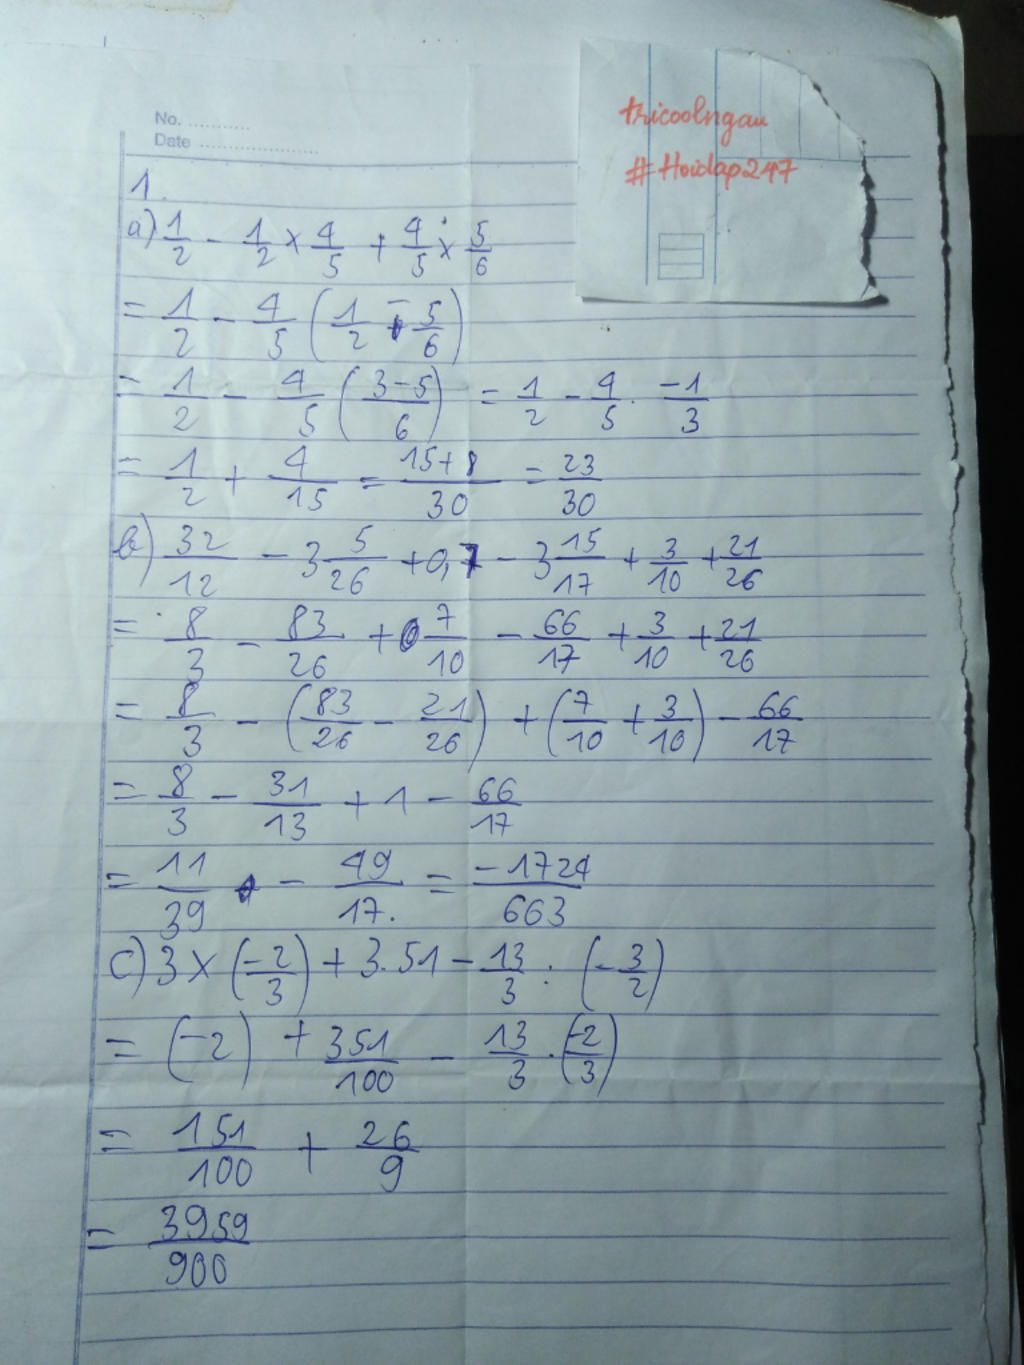 No. ...........
Date .....................
tricoolngau
#Hoidap247
1.
a) 1/2 - 1/2 × 4/5 + 4/5 × 5/6
= 1/2 - 4/5 (1/2 - 5/6)
= 1/2 - 4/5 ((3-5)/6) = 1/2 - 4/5 . -1/3
= 1/2 + 4/15 = (15+8)/30 = 23/30
b) 32/12 - 3 5/26 + 0,7 - 3 15/17 + 3/10 + 21/26
= 8/3 - 83/26 + 7/10 - 66/17 + 3/10 + 21/26
= 8/3 - (83/26 - 21/26) + (7/10 + 3/10) - 66/17
= 8/3 - 31/13 + 1 - 66/17
= 11/39 - 49/17 = -1724/663
c) 3 × (-2/3) + 3.51 - 13/3 : (-3/2)
= (-2) + 351/100 - 13/3 . (-2/3)
= 151/100 + 26/9
= 3959/900